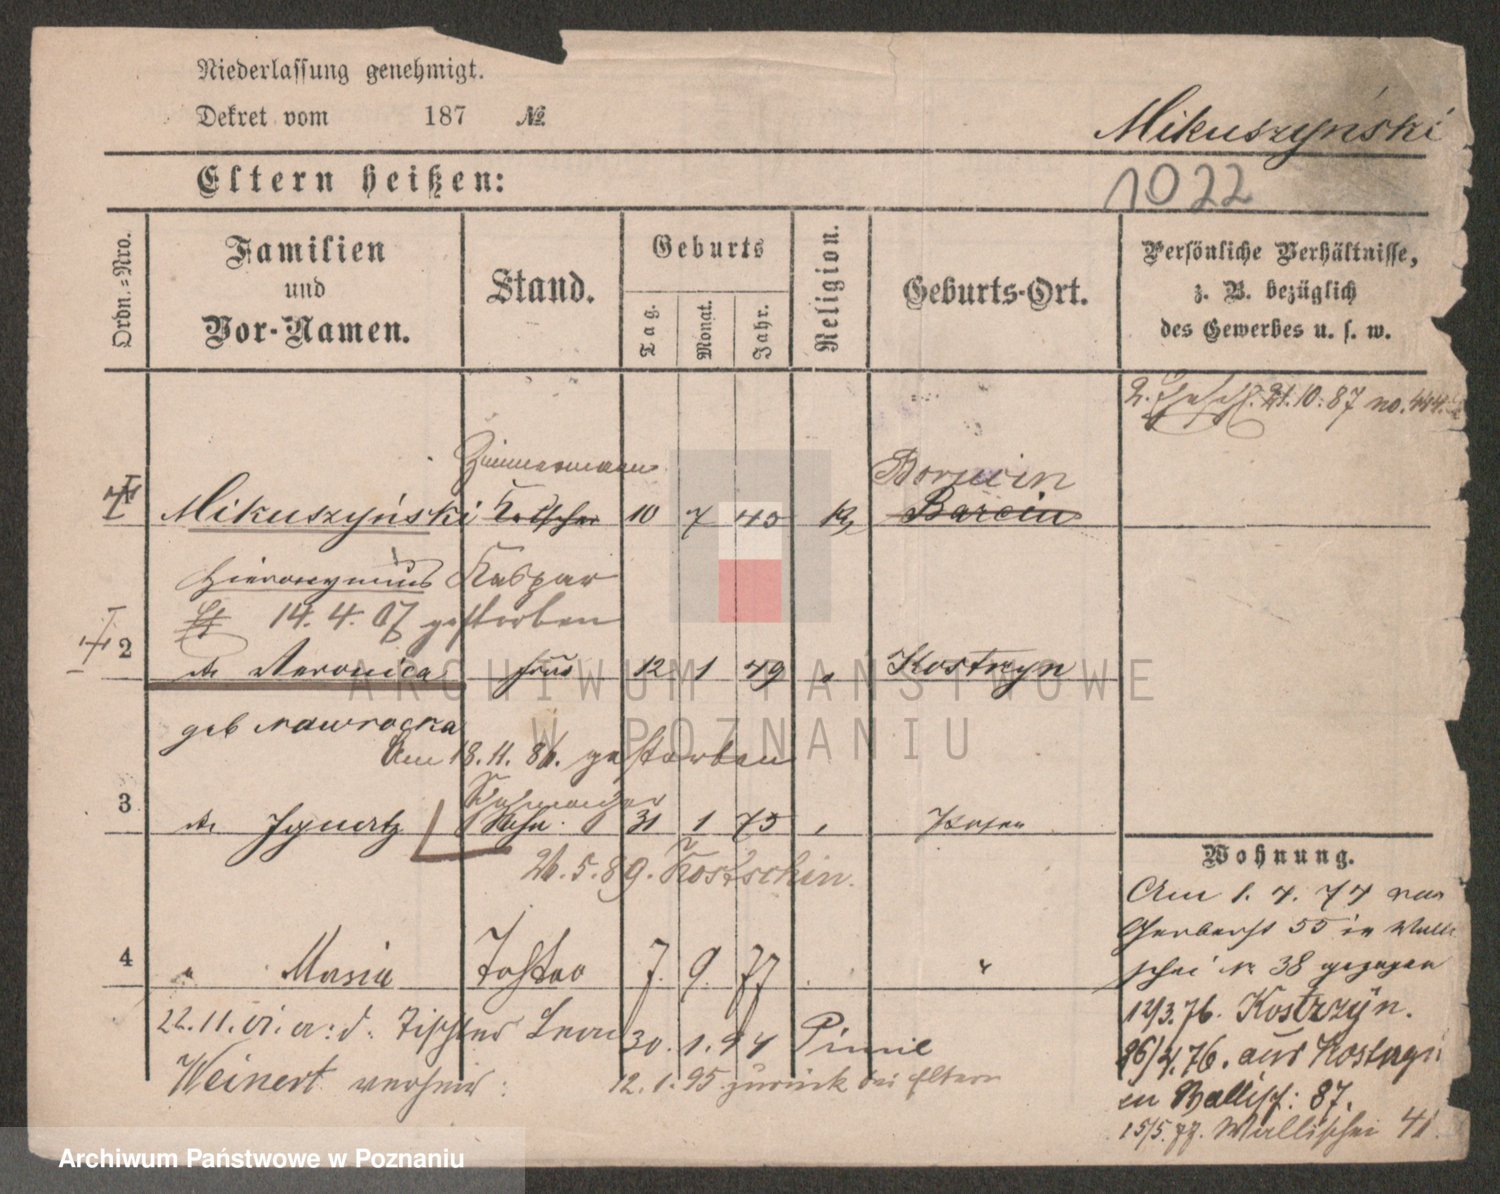 Niederlassung genehmigt.
Dekret vom 187 №
Mikuszyński
Eltern heißen:
1022
Ordn.-Nro.
Familien und Vor-Namen.
Stand.
Geburts
Tag.
Monat.
Jahr.
Religion.
Geburts-Ort.
Persönliche Verhältnisse,
z. B. bezüglich
des Gewerbes u. s. w.
2. 21.10.87 no. 444.
Zimmermann
Borucin
Mikuszyński Kutscher 10 7 45 Barcin
Hieronymus Kaspar
14. 4. 07 gestorben
2 Veronica Frau 12 1 49 " Kostrzyn
geb Nawrocka
Am 18.11.86. gestorben
3 Ignatz Sohn. 31 1 75 " Posen
26.5.89. Kostschin.
4 " Maria Tochter 7. 9. 77 "
22.11. a: d. Tischler Leon 30. 1. 94 Pinne
Weinert verheir:
12.1.95 zurück bei Eltern
Wohnung.
Am 1. 4. 74 von
Gerberst 55 in Walli
schei Nr 38 gezogen
12/3.76. Kostrzyn.
26/4.76. aus Kostrzyn
in Wallisch: 87.
15/5.77. Wallischei 41
ARCHIWUM PAŃSTWOWE
W POZNANIU
Archiwum Państwowe w Poznaniu